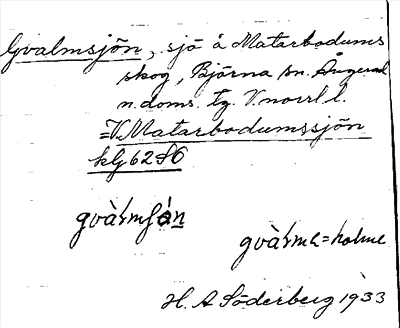 Gvalmsjön, sjö å Matarbodums
skog, Björna sn. Ångerml.
n. doms. tg. V. norrl l.
=V. Matarbodumssjön
klg 62 86
gvàɽmʃön
gvàɽmə=holme
H. A Söderberg 1933